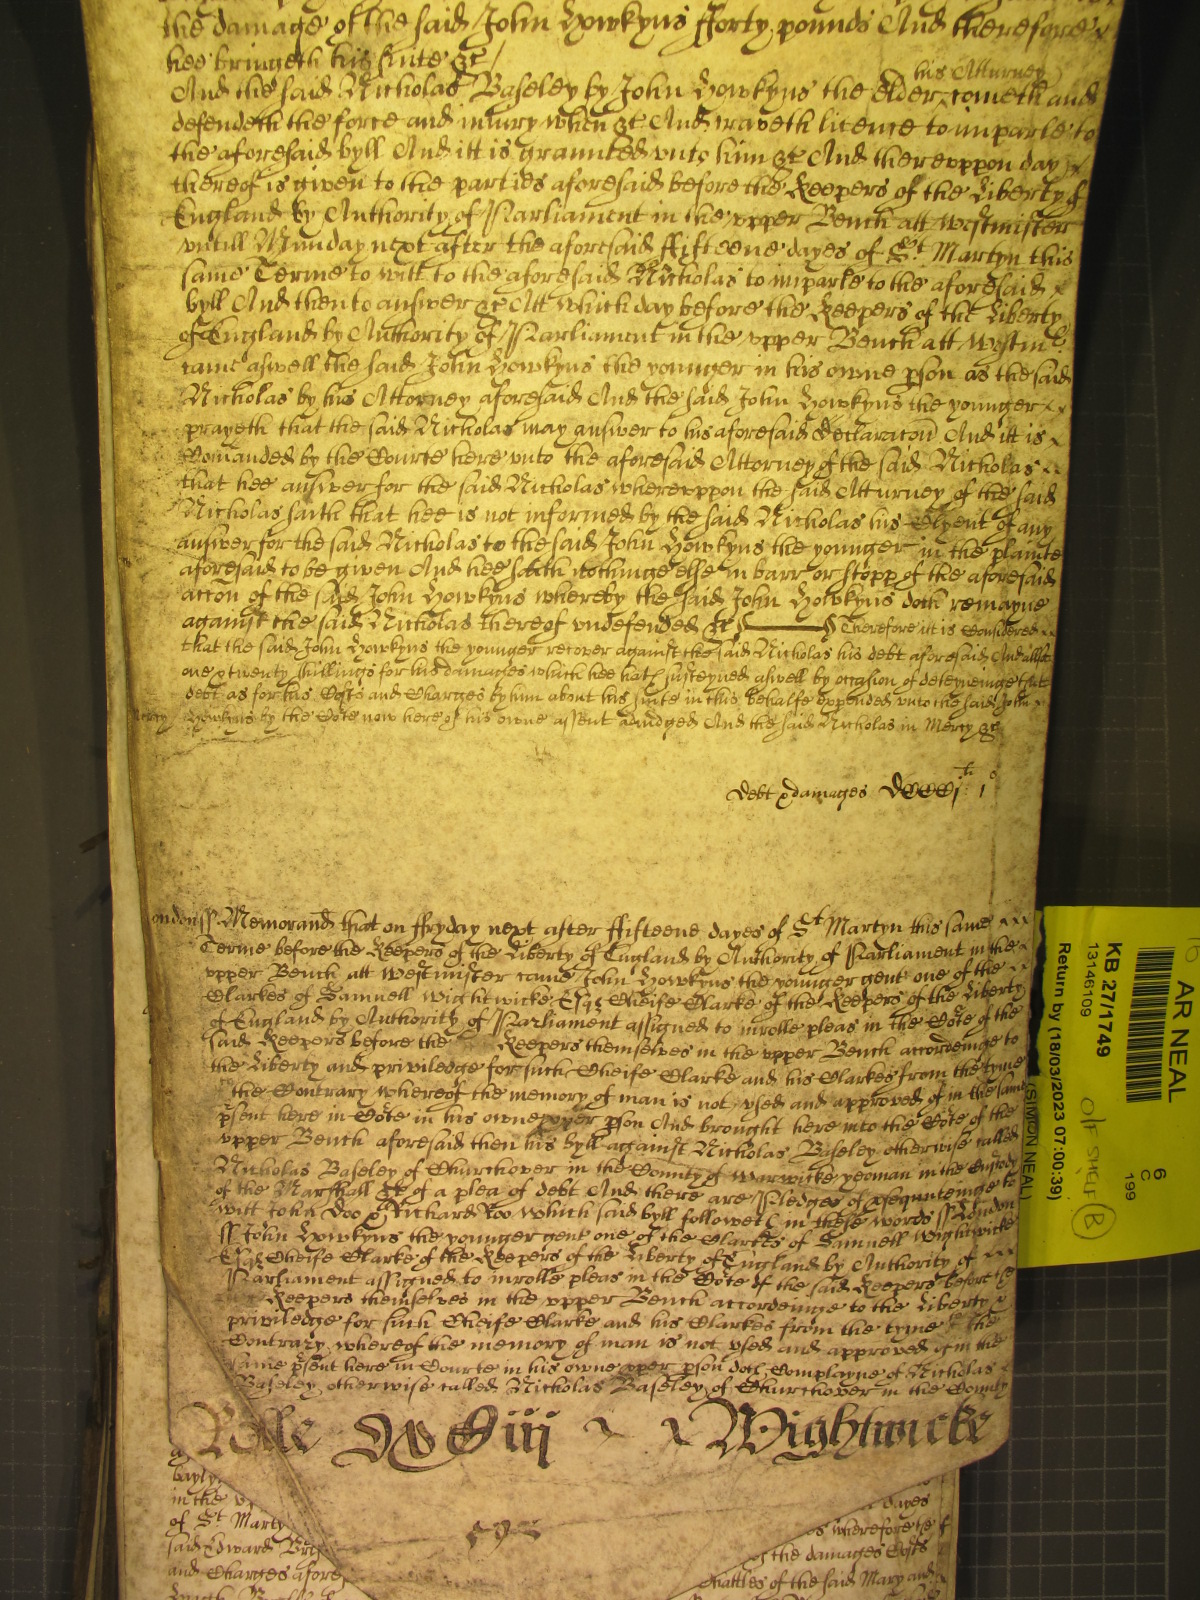 the damage of the said John Howkyns fforty pounds And therefore
hee bringeth his suite &c
his Atturney
And the said Nicholas Baseley by John Howkyns the elder cometh and
defendeth the force and iniury when &c And craveth licence to imparle to
the aforesaid byll And itt is graunted vnto him &c And therevppon day
thereof is given to the parties aforesaid before the Keepers of the Liberty of
England by Authority of Parliament in the vpper Bench att Westmister
vntill Munday next after the aforesaid ffifteene dayes of St Martyn this
same Terme to witt to the aforesaid Nicholas to imparle to the aforesaid
byll And then to answer &c Att which day before the Keepers of the Liberty
of England by Authority of Parliament in the vpper Bench att Westm
came aswell the said John Howkyns the younger in his owne pson as the said
Nicholas by his Attorney aforesaid And the said John Howkyns the younger
prayeth that the said Nicholas may answer to his aforesaid declaracon And itt is
Comanded by the Courte here vnto the aforesaid Attorney of the said Nicholas
that hee answer for the said Nicholas wherevppon the said Atturney of the said
Nicholas saith that hee is not informed by the said Nicholas his Clyent of any
answer for the said Nicholas to the said John Howkyns the younger in the plainte
aforesaid to be given And hee saith nothinge else in barr or stopp of the aforesaid
accon of the said John Howkyns whereby the said John Howkyns doth remayne
against the said Nicholas thereof vndefended &c Therefore itt is Considered
that the said John Howkyns the younger recover against the said Nicholas his debt aforesaid And allsoe
one & twenty shillings for his damages which hee hath susteyned aswell by occasion of deteyneinge that
debt as for his Costs and Charges by him about his suite in this behalfe expended vnto the said John
mercy Howkyns by the Cote now here of his owne assent adiudged And the said Nicholas in Mercy &c
Debt & damages
ondon ss Memorand that on ffryday next after ffifteene dayes of St Martyn this same
Terme before the Keepers of the Liberty of England by Authority of Parliament in the
vpper Bench att Westmister came John Howkyns the younger gent one of the
Clarkes of Samuell Wightwicke Esqr Cheife Clarke of the Keepers of the Liberty
of England by Authority of Parliament assigned to inrolle pleas in the Cote of the
said Keepers before the Keepers themselves in the vpper Bench accordeinge to
the Liberty and priviledge for such Cheife Clarke and his Clarkes from the tyme
the Contrary whereof the memory of man is not vsed and approved of in the same
psent here in Cote in his owne pper pson And brought here into the Cote of the
vpper Bench aforesaid then his byll against Nicholas Baseley otherwise called
Nicholas Baseley of Churchover in the County of Warwicke yeoman in the Custody
of the Marshall &c of a plea of debt And there are Pledges of psequuteinge to
witt John Doo & Richard Roo which said byll followeth in these words ss London
ss John Howkyns the younger gent one of the Clarkes of Samuell Wightwicke
Esqr Cheife Clarke of the Keepers of the Liberty of England by Authority of
Parliament assigned to inrolle pleas in the Cote of the said Keepers before the
Keepers themselves in the vpper Bench accordeinge to the Liberty &
priviledge for such Cheife Clarke and his Clarkes from the tyme the
Contrary whereof the memory of man is not vsed and approved of in the
same psent here in Courte in his owne pper pson doth Complayne of Nicholas
Baseley otherwise called Nicholas Baseley of Churchover in the County
Rolle Wightwicke
bayly
in the vp
of St Marty
said Edward
and Charges afore
dayes
wherefore
of the damages Costs
chattles of the said Mary and
AR NEAL
KB 27/1749
13146109
Return by (18/03/2023 07:00:39)
(SIMON NEAL)
6
C
199
O/F SHELF B